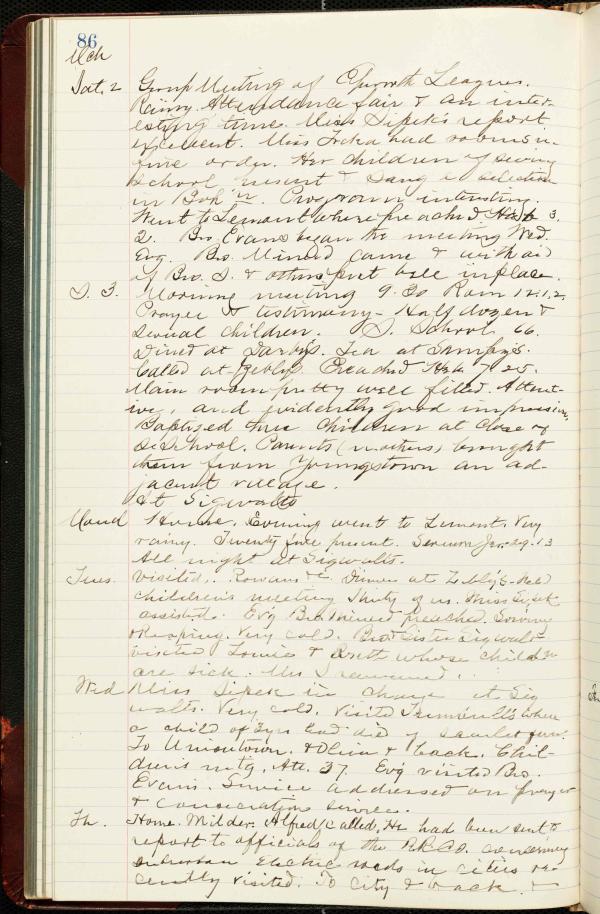 86
Mch
Sat. 2 Group Meeting of Epworth Leagues.
Rainy. Attendance fair & an inter-
esting time. Miss Sipek's report
excellent. Miss had rooms in
fine order. Her children of sewing
school present & sang a selection
in Boh'n. Program interesting.
Went to Lemont where preached Heb 3.
2. Bro. Evans began the meeting Wed.
Evg. Bro. Minard came & with aid
of Bro. S. & others put all in place.
S. 3. Morning meeting 9.30 Rom 12.1,2.
Prayer & testimony - Half dozen &
several children. S. School 66.
Dined at Darby's. Tea at
Called at Zebly's. Preached Heb 7 25.
Main room pretty well filled. Attent-
ive, and evidently good impression.
Baptized three children at close of
S. School. Parents (mothers) brought
them from Youngstown an ad-
jacent village.
At Sigwalts
Mond Home. Evening went to Lemont. Very
rainy. Twenty five present. Sermon Jer. 29.13
All night at Sigwalts.
Tues. Visited. Rowans &c. Dinner at Zebly's - Held
children's meeting thirty of us. Miss Sipek
assisted. Ev'g Bro. Minard preached. Sowing
& Reaping. Very cold. Bro & Sister Sigwalt
visited Louis & whose children
are sick. Mrs S remained.
Wed Miss Sipek in charge at Sig
walts. Very cold. Visited where
a child of 3 yrs had died of scarlet fever.
To Uniontown, & back. Chil-
dren's mtg. Att. 37. Ev'g visited Bro.
Evans. Service addressed on prayer
& consecration service.
Th. Home. Milder. Alfred called, He had been sent to
report to officials of the R.R. Co. concerning
suburban Electric roads in cities re-
cently visited. To city & back.